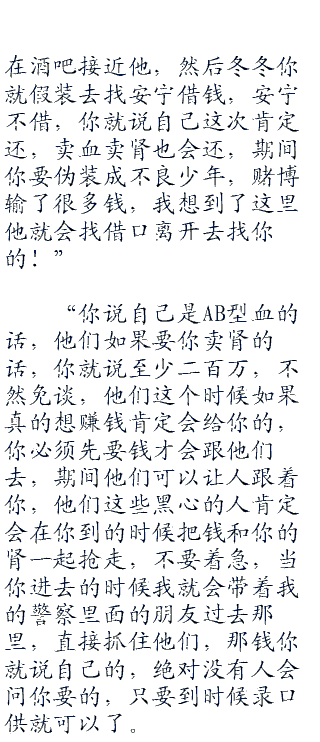 在酒吧接近他，然后冬冬你
就假装去找安宁借钱，安宁
不借，你就说自己这次肯定
还，卖血卖肾也会还，期间
你要伪装成不良少年，赌博
输了很多钱，我想到了这里
他就会找借口离开去找你
的！”
“你说自己是AB型血的
话，他们如果要你卖肾的
话，你就说至少二百万，不
然免谈，他们这个时候如果
真的想赚钱肯定会给你的，
你必须先要钱才会跟他们
去，期间他们可以让人跟着
你，他们这些黑心的人肯定
会在你到的时候把钱和你的
肾一起抢走，不要着急，当
你进去的时候我就会带着我
的警察里面的朋友过去那
里，直接抓住他们，那钱你
就说自己的，绝对没有人会
问你要的，只要到时候录口
供就可以了。